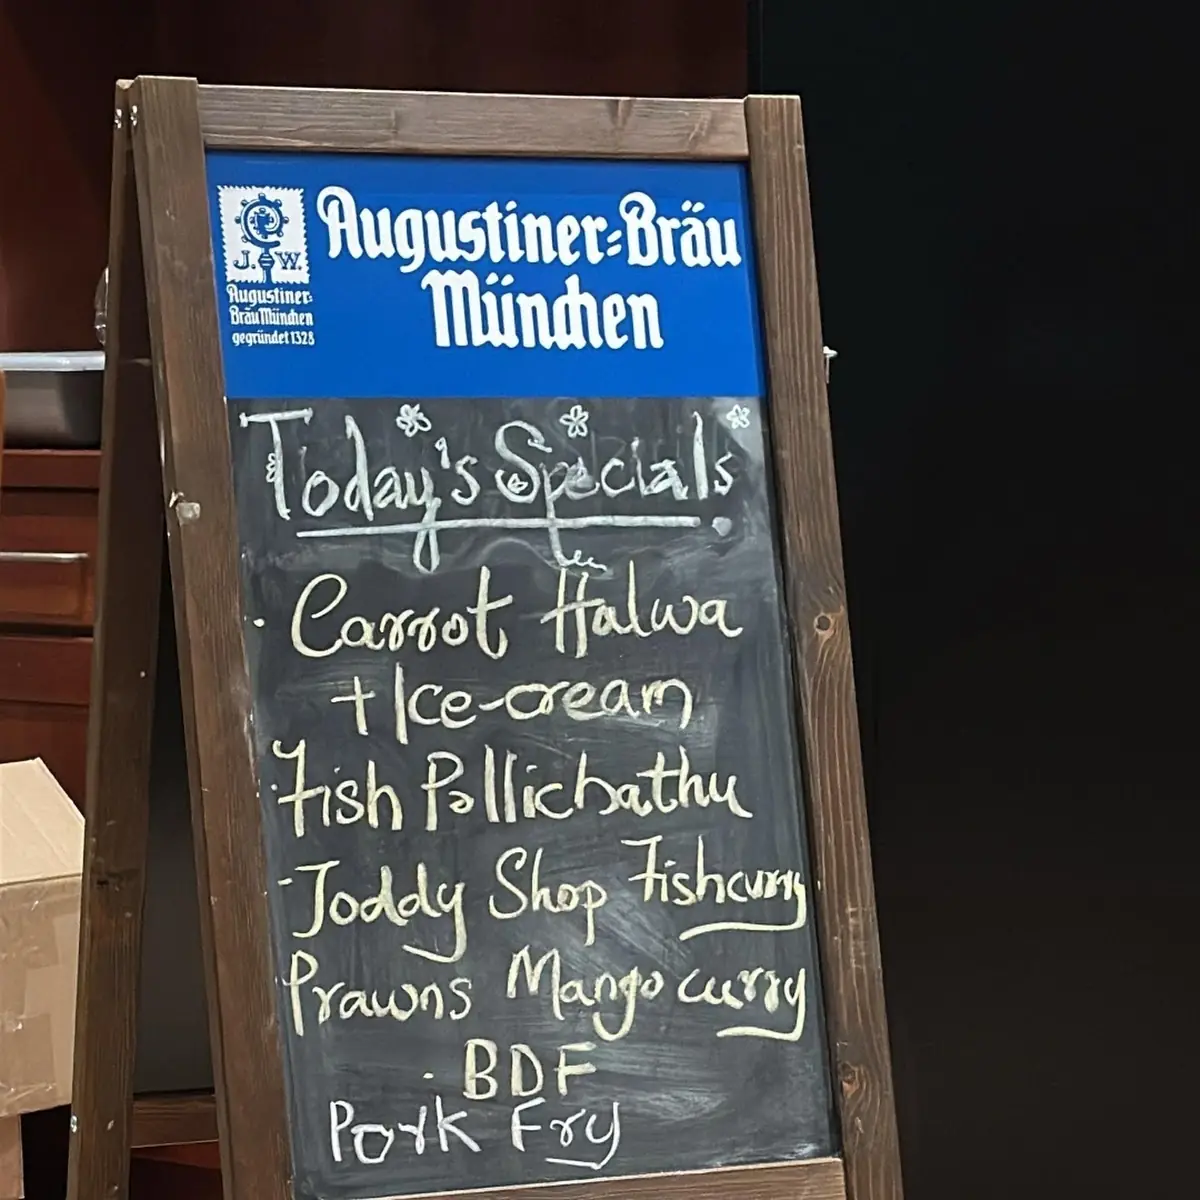 J. W.
Augustiner-
Bräu München
gegründet 1328
Augustiner-Bräu
München
Today's Specials
· Carrot Halwa
+ Ice-cream
· Fish Pollichathu
· Toddy Shop Fishcurry
Prawns Mango curry
· BDF
Pork Fry